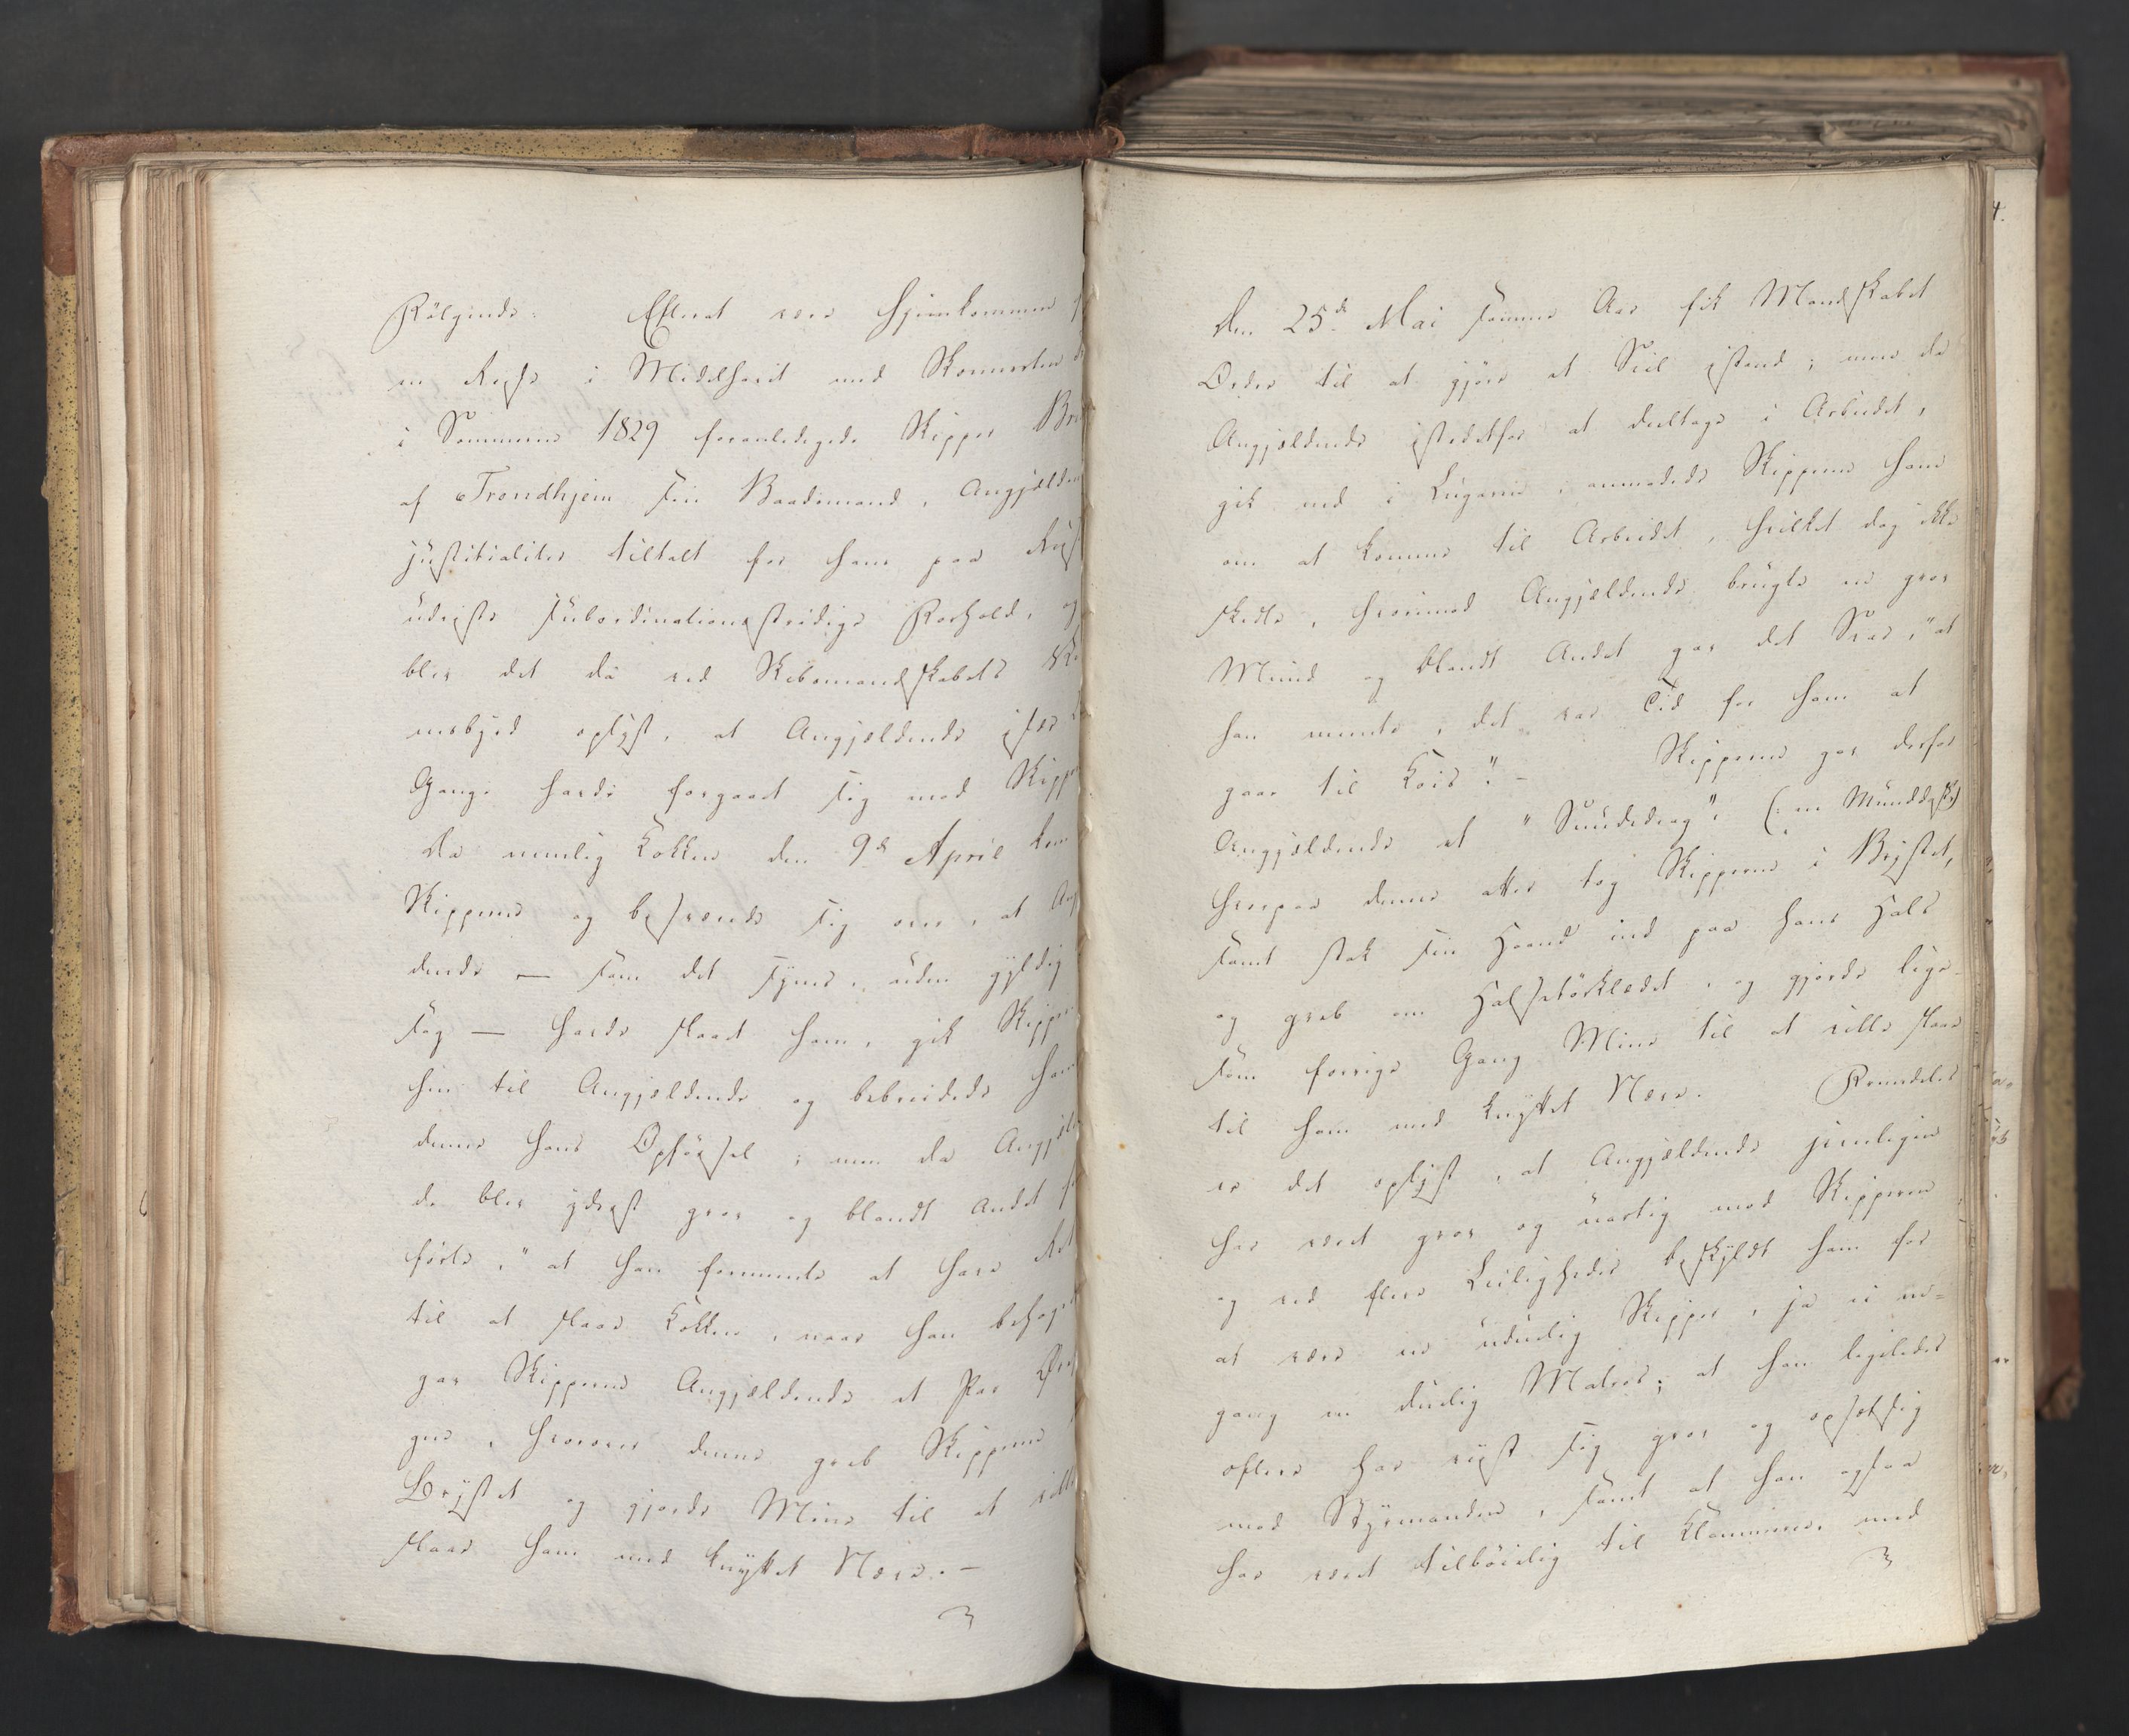 Følgende: Efterat være hjemkommen
en Reise i Middelhavet med Skonnerten
i Sommeren 1829 foranledigede Skipper
af Trondhjem sin Baadsmand, Angjælden
justitialiter tiltalt for hans paa Reis
udviste subordinationsstridige Forhold, og
blev det da ved Skibsmandskabets
nesbyrd oplyst, at Angjældende især
Gange havde forgaaet sig mod Skippe
Da nemlig Kokken den 9de April kom
Skipperen og besværede sig over, at Angj
dende — som det synes, uden gyldig
sag — havde slaaet ham, gik Skipper
hen til Angjældende og bebreidede ham
denne hans Opførsel; men da Angjæl
de blev yderst grov og blandt Andet
førte, "at han formeente at have Ret
til at slaae Kokken, naar han behaged
gav Skipperen Angjældende et Par Ørf
gen, hvorover denne greb Skipperen
Brystet og gjorde Mine til at ville
slaae ham med knyttet Næve. —
Den 25de Mai samme Aar fik Mandskabet
Ordre til at gjøre et Seil istand; men da
Angjældende istedetfor at deeltage i Arbeidet,
gik ned i Lugaren, anmodede Skipperen ham
om at komme til Arbeidet, hvilket dog ikke
skedte, hvorimod Angjældende brugte en grov
Mund og blandt Andet gav det Svar, "at
han meente, det var Tid for ham at
gaae til Kois". — Skipperen gav derfor
Angjældende et "Snudedrag", (: en Munddask)
hvorpaa denne atter tog Skipperen i Brystet,
samt stak sin Haand ind paa hans Hals
og greb om Halstørklædet, og gjorde lige-
som forrige Gang Mine til at ville slaae
til ham med knyttet Næve. Fremdeles
er det oplyst, at Angjældende jevnligen
har været grov og uartig mod Skipperen
og ved flere Leiligheder beskyldt ham for
at være en uduelig Skipper, ja ei en-
gang en duelig Matros; at han ligeledes
oftere har viist sig grov og opsætsig
mod Styrmanden, samt at han ogsaa
har været tilbøielig til Klammerie med